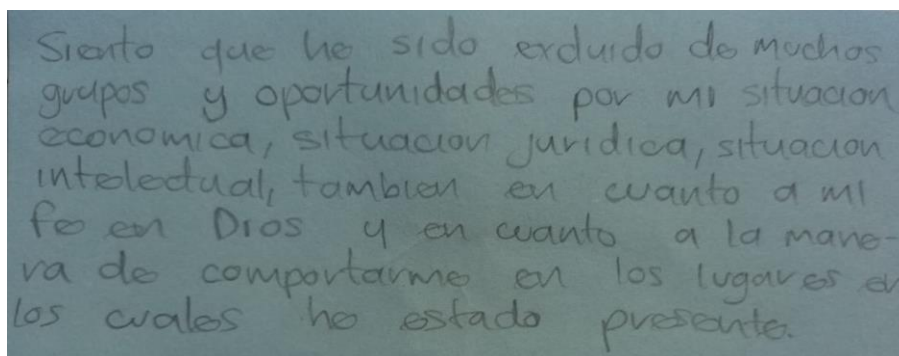 Siento que he sido excluido de muchos
grupos y oportunidades por mi situacion
economica, situacion juridica, situacion
intelectual, tambien en cuanto a mi
fe en Dios y en cuanto a la mane-
ra de comportarme en los lugares en
los cuales he estado presente.